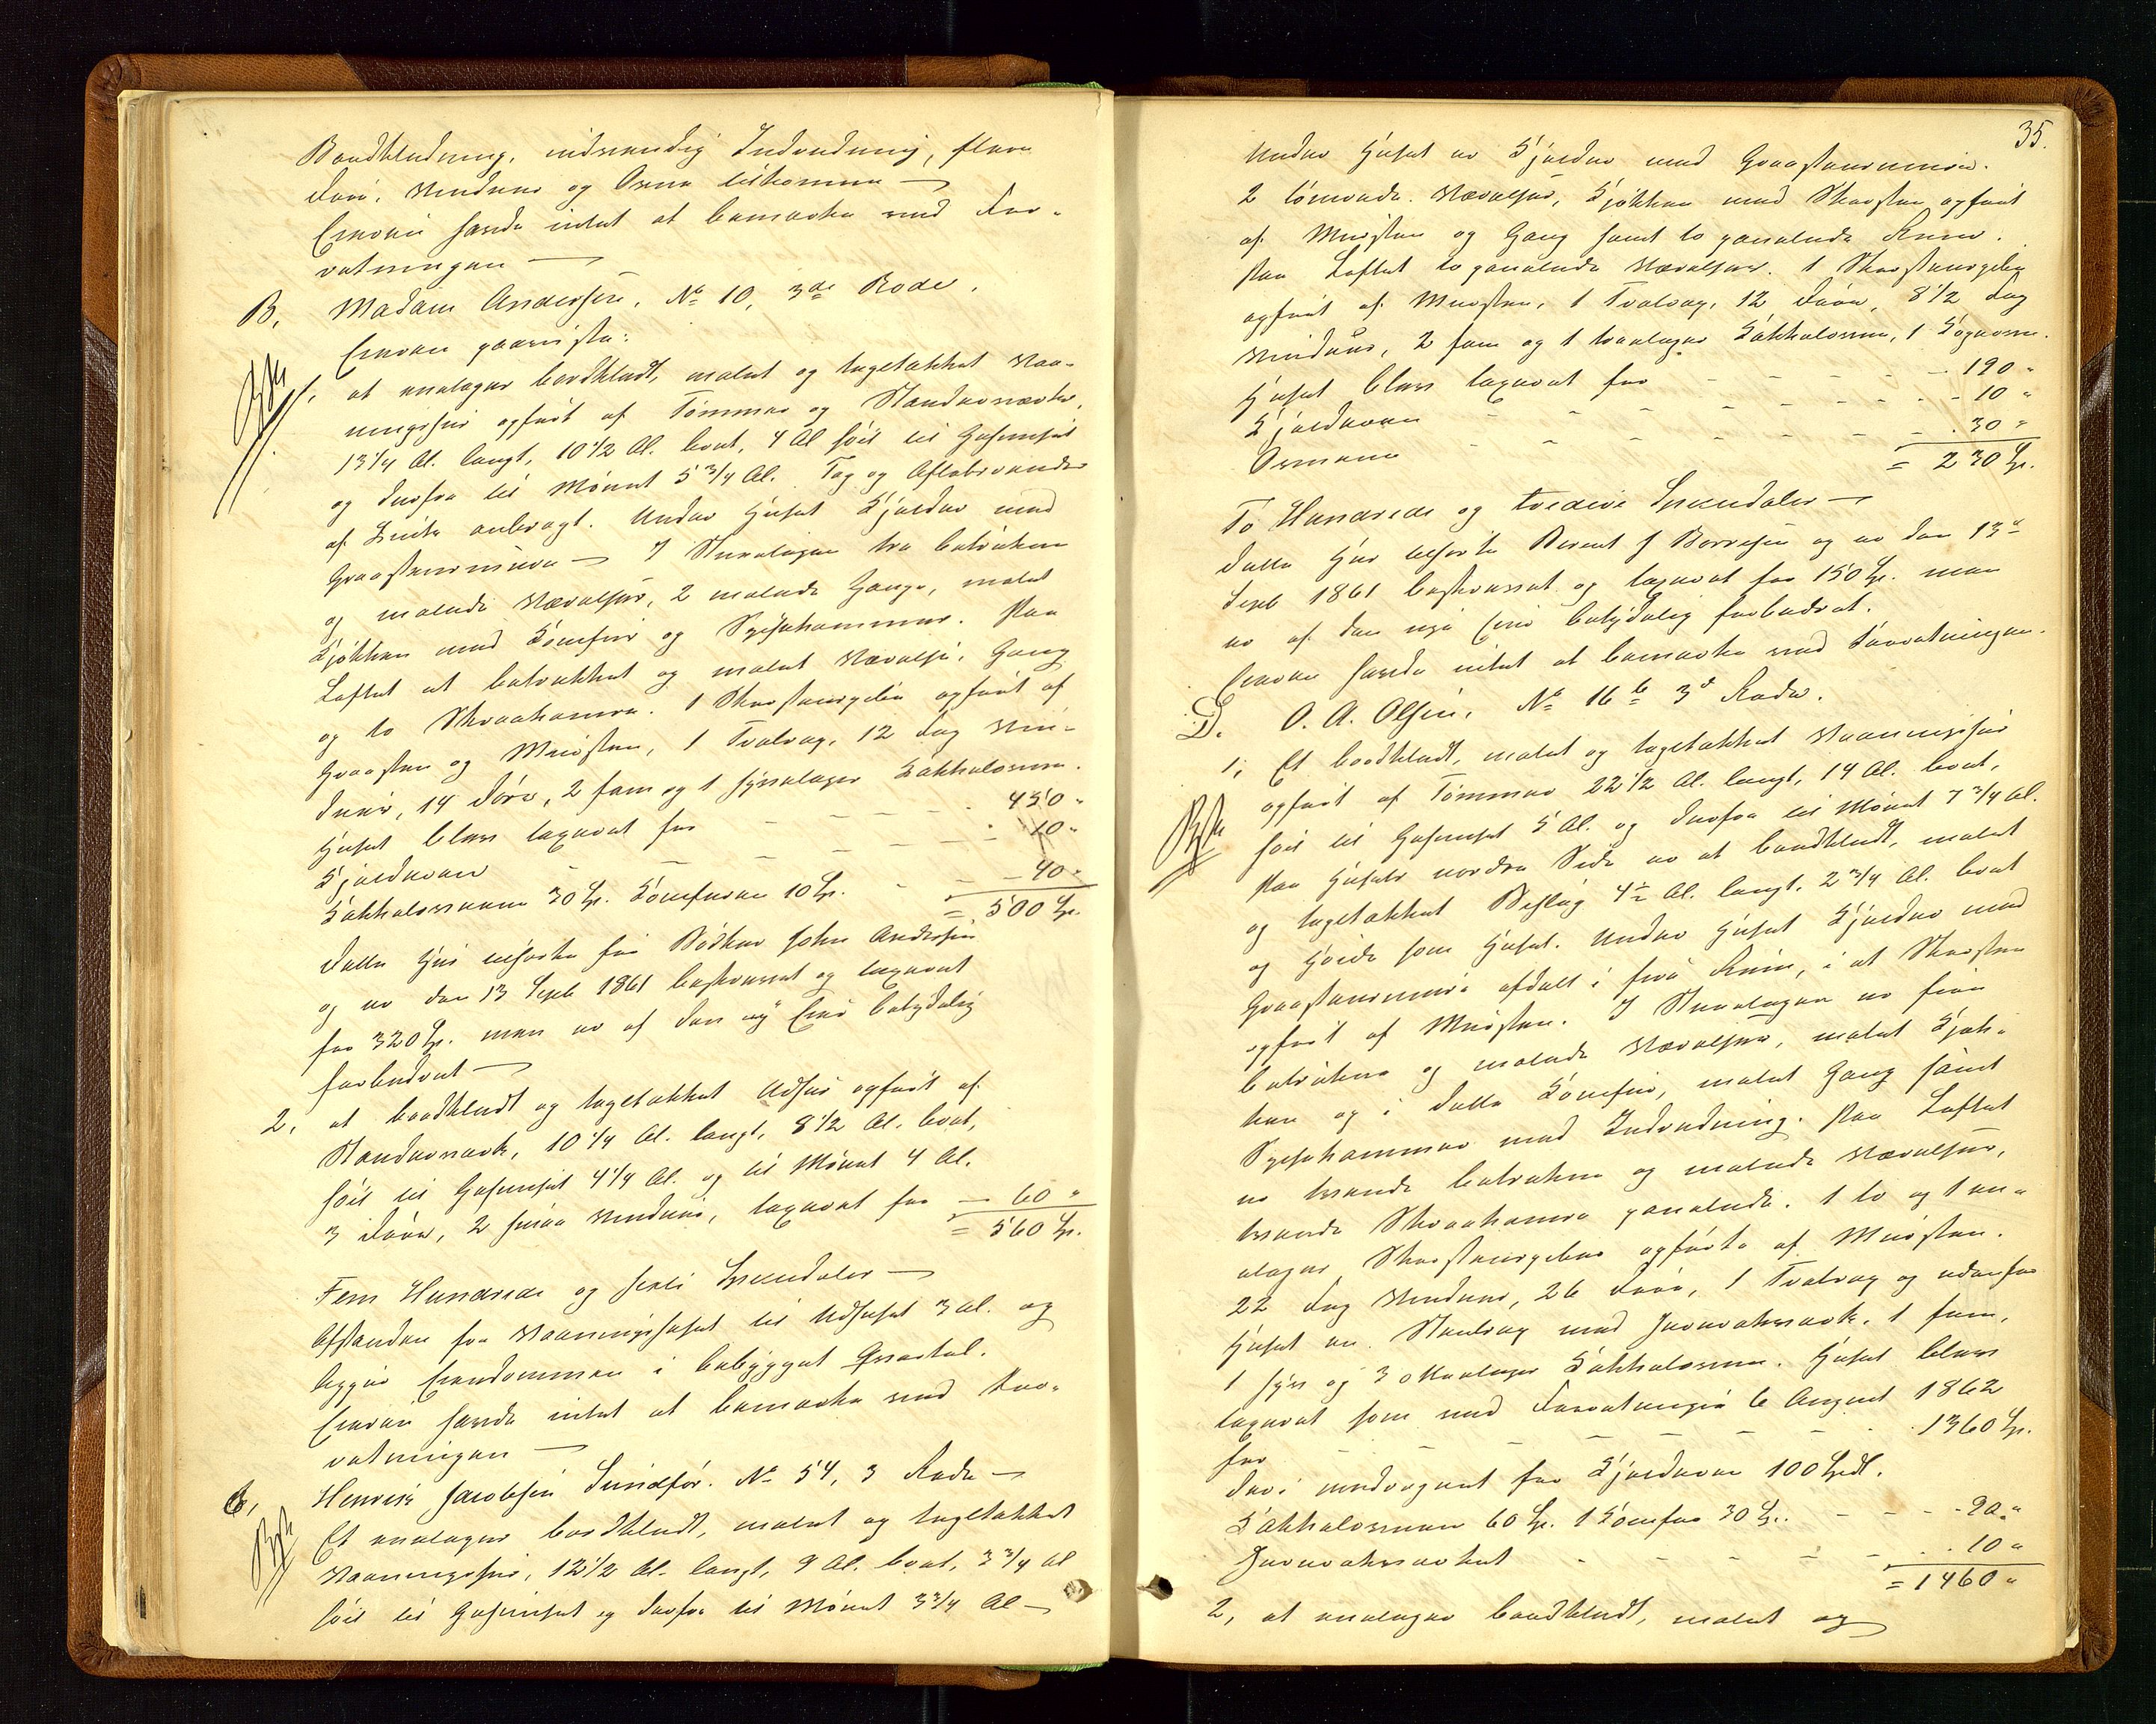 Bordklædning, indvendig Indredning, flere
Døre, Vinduer og Ovne tilkomne —
Eieren havde intet at bemærke ved For-
retningen —
B, Madam Andersen, No 10, 3de Rode.
Eieren paaviste:
1, et enetages bordklædt, malet og tagetækket Vaa-
ningshus opført af Tømmer og Standerværk,
13 1/4 Al. langt, 10 1/2 Al. bredt, 4 Al høit til Gesimset
og derfra til Mønet 5 3/4 Al. Tag og
af anbragt. Under Huset Kjelder med
Graasteensmure — I Stueetagen tre betrukne
og malede Værelser, 2 malede Gange, malet
Kjøkken med Komfur og Spisekammer. Paa
Loftet et betrukket og malet Værelse, Gang
og to Skraakamre. 1 Skorsteenspibe opført af
Graasteen og Muursteen, 1 Tveltrap, 12 Fag Vin-
duer, 14 Døre, 2 fem og 1 syvetages Kakkelovne.
Huset blev taxeret for - - - - 450 "
Kjelderen - - - - - 10 "
Kakkelovnene 30 Sp. Komfuren 10 Sp. - - 40 "
= 500 Sp.
Dette Huus tilhørte før Bødker John Andersen
og er den 13 Septb 1861 beskrevet og taxeret
for 320 Sp. men er af den ny Eier betydelig
forbedret —
2, et bordklædt og tagetækket Udhus opført af
Standerværk, 10 1/4 Al. langt, 8 1/2 Al. bredt,
høit til Gesimset 4 1/4 Al. og til Mønet 4 Al.
3 Døre, 2 smaa Vinduer, taxeret for — 60 "
= 560 Sp.
Fem Hundrede og sexti Speciedaler —
Afstanden fra Vaaningshuset til Udhuset 3 Al. og
ligger Eiendommen i bebygget Qvartal.
Eieren havde intet at bemærke ved For-
retningen —
C, Henrik Jacobsen Sundfør. No 54, 3 Rode —
Et enetages bordklædt, malet og tagetækket
Vaaningshus, 12 1/2 Al. langt, 9 Al. bredt, 3 3/4 Al
høit til Gesimset og derfra til Mønet 3 3/4 Al —
35.
Under Huset er Kjelder med Graasteensmure.
2 tømrede Værelser, Kjøkken med Skorsteen opført
af Muursteen og Gang samt to panelede Rum.
Paa Loftet to panelede Værelser. 1 Skorsteenspibe
opført af Muursteen, 1 Tveltrap, 12 Døre, 8 1/2 Fag
Vinduer, 2 fem og 1 treetages Kakkelovne, 1 Kogeovn.
Huset blev taxeret for - - - - - 190 "
Kjelderen - - - - - - 10 "
Ovnene - - - - - - 30 "
= 230 Sp.
To Hundrede og tredive Speciedaler —
Dette Huus tilhørte Berent J Borresen og er den 13de
Septb 1861 beskrevet og taxeret for 150 Sp. men
er af den nye Eier betydelig forbedret.
Eieren havde intet at bemærke ved Forretningen.
D. O. A. Olsen, No 16 b 3de Rode.
1, Et bordklædt, malet og tagetækket Vaaningshus
opført af Tømmer 22 1/2 Al. langt, 14 Al. bredt,
høit til Gesimset 5 Al. og derfra til Mønet 7 3/4 Al.
Paa Husets nordre Side er et bordklædt, malet
og tagetækket Bislag 4 1/2 Al. langt, 2 3/4 Al. bredt
og Høide som Huset. Under Huset Kjelder med
Graasteensmure afdelt i fire Rum, i et Skorsteen
opført af Muursteen. I Stueetagen er fire
betrukne og malede Værelser, malet Kjøk-
ken og i dette Komfur, malet Gang samt
Spisekammer med Indredning. Paa Loftet
er trende betrukne og malede Værelser,
trende Skraakamre panelede. 1 to og 1 en-
etages Skorsteenspiber opførte af Muursteen.
22 Fag Vinduer, 26 Døre, 1 Tveltrap og udenfor
Huset en Steentrap med Jernrækværk. 1 fem,
1 syv og 3 otteetages Kakkelovne. Huset blev
taxeret som ved Forretningen 6 August 1862
for - - - - - - - 1360 Sp.
deri medregnet for Kjelderen 100 Spdl.
Kakkelovnene 60 Sp. 1 Komfur 30 Sp. - - - 90 "
Jernrækværket - - - - - 10 "
= 1460 "
2, et enetages bordklædt, malet og